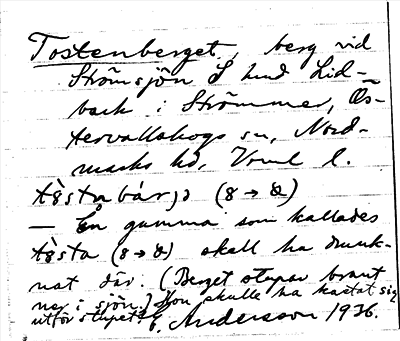 Tostenberget, berg vid
Strömsjön S hmd Lid-
back i Strömmer, Ös-
tervallskogs sn, Nord-
marks hd, Vrml l.
(8 → &)
— En gumma som kallades
(8→&) skall ha drunk-
nat där. (Berget stupar brant
ner i sjön.) Hon skulle ha kastat sig
utför stupet. E. Andersson 1936.